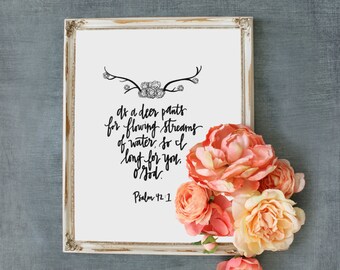 as a deer pants
for flowing streams
of water. So I
long for you,
O God.
Psalm 42:1